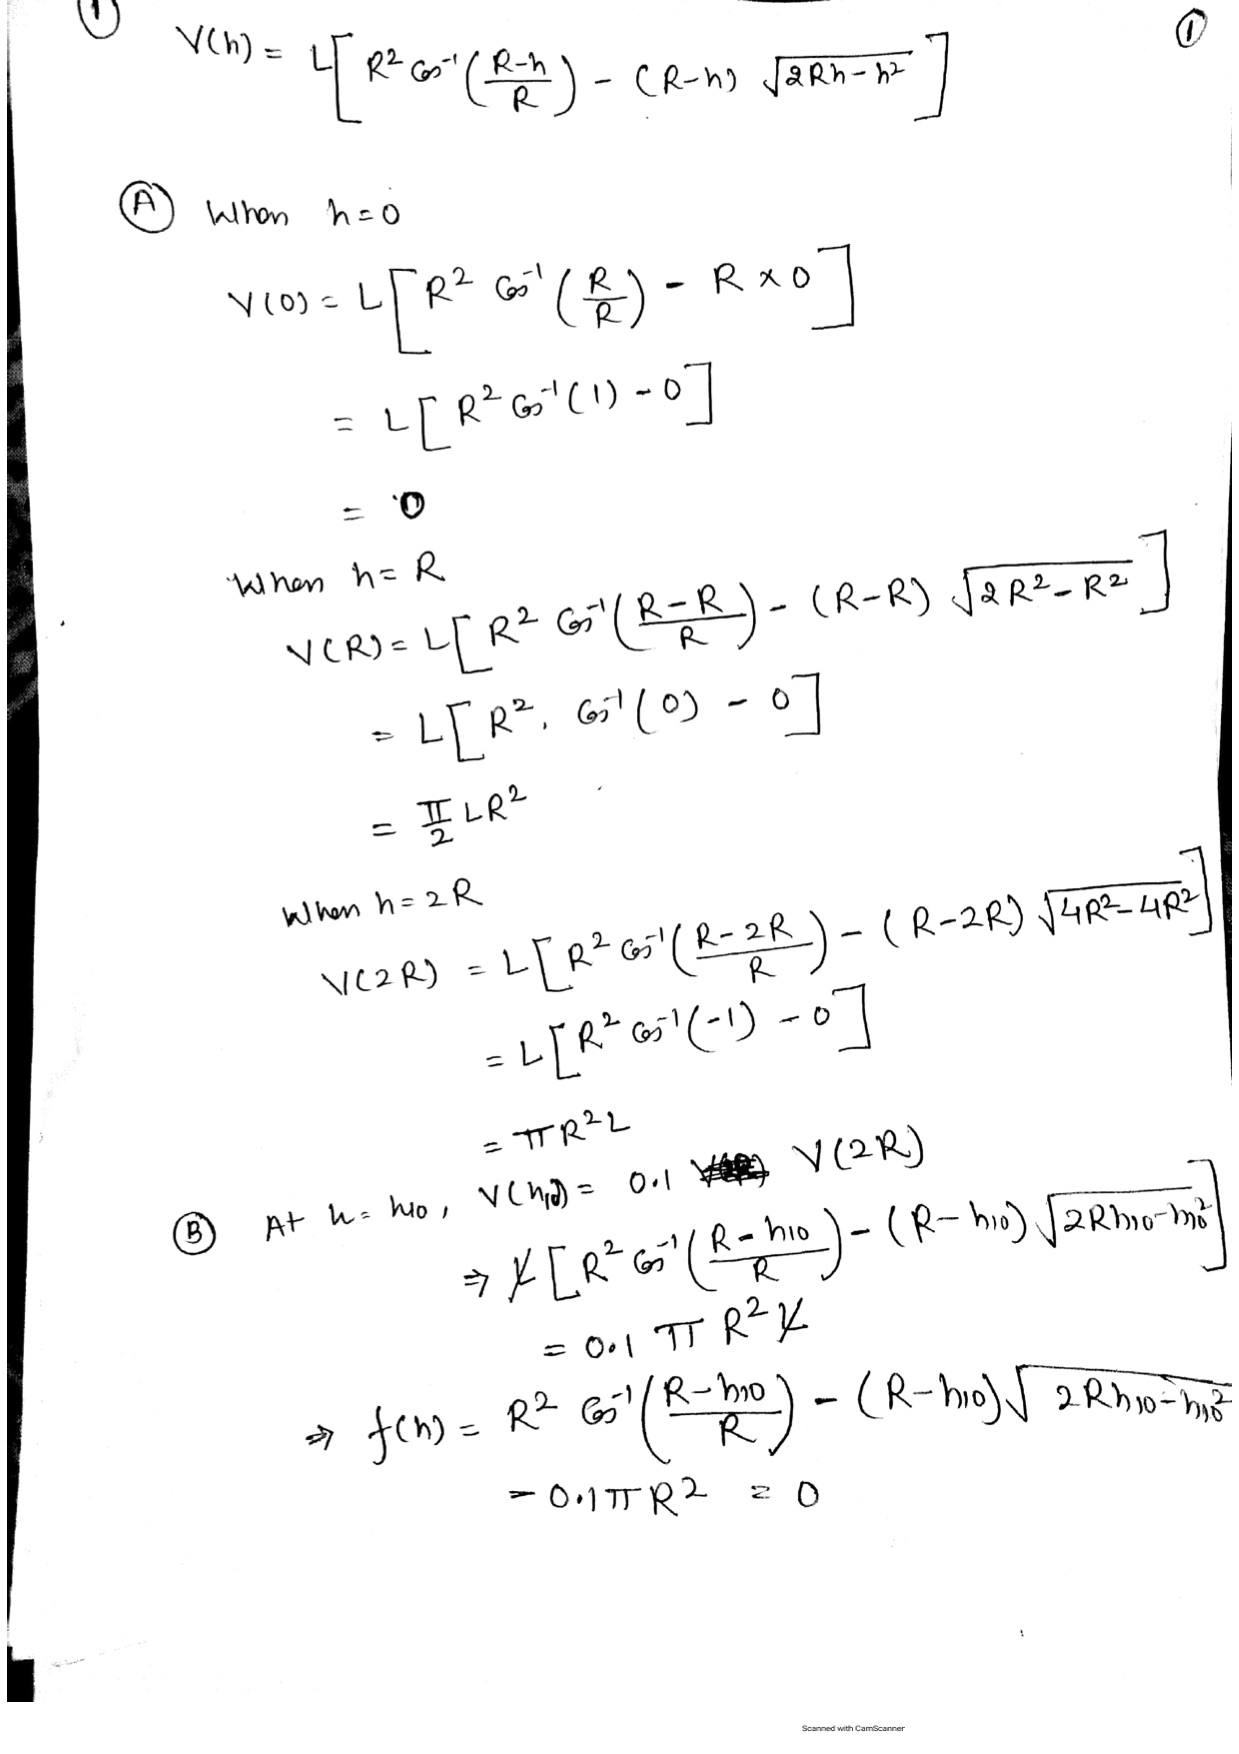 ① ①
V(h) = L[R² Cos⁻¹((R-h)/R) - (R-h) √(2Rh-h²)]
Ⓐ When h=0
V(0) = L[R² Cos⁻¹(R/R) - R × 0]
= L[R² Cos⁻¹(1) - 0]
= 0
When h= R
V(R) = L[R² Cos⁻¹((R-R)/R) - (R-R) √(2R²-R²)]
= L[R². Cos⁻¹(0) - 0]
= π/2 LR²
When h=2R
V(2R) = L[R² Cos⁻¹((R-2R)/R) - (R-2R) √(4R²-4R²)]
= L[R² Cos⁻¹(-1) - 0]
= πR²L
Ⓑ At h= h₁₀, V(h₁₀) = 0.1 V(2R)
⇒ L[R² Cos⁻¹((R-h₁₀)/R) - (R-h₁₀) √(2Rh₁₀-h₁₀²)]
= 0.1 π R² L
⇒ f(h) = R² Cos⁻¹((R-h₁₀)/R) - (R-h₁₀) √(2Rh₁₀-h₁₀²)
- 0.1πR² = 0
Scanned with CamScanner